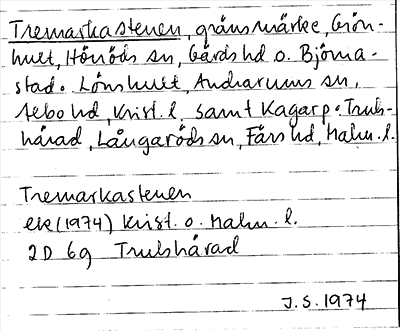 Tremarkastenen, gränsmärke, Grön-
hult, Hörröds sn, Gärds hd o. Björna-
stad o. Lönshult, Andrarums sn,
Albo hd, Krist. l. samt Kagarp o. Truls-
härad, Långaröds sn, Färs hd, Malm. l.
Tremarkastenen
ek (1974) Krist. o. Malm. l.
2D 6g Trulshärad
J.S. 1974